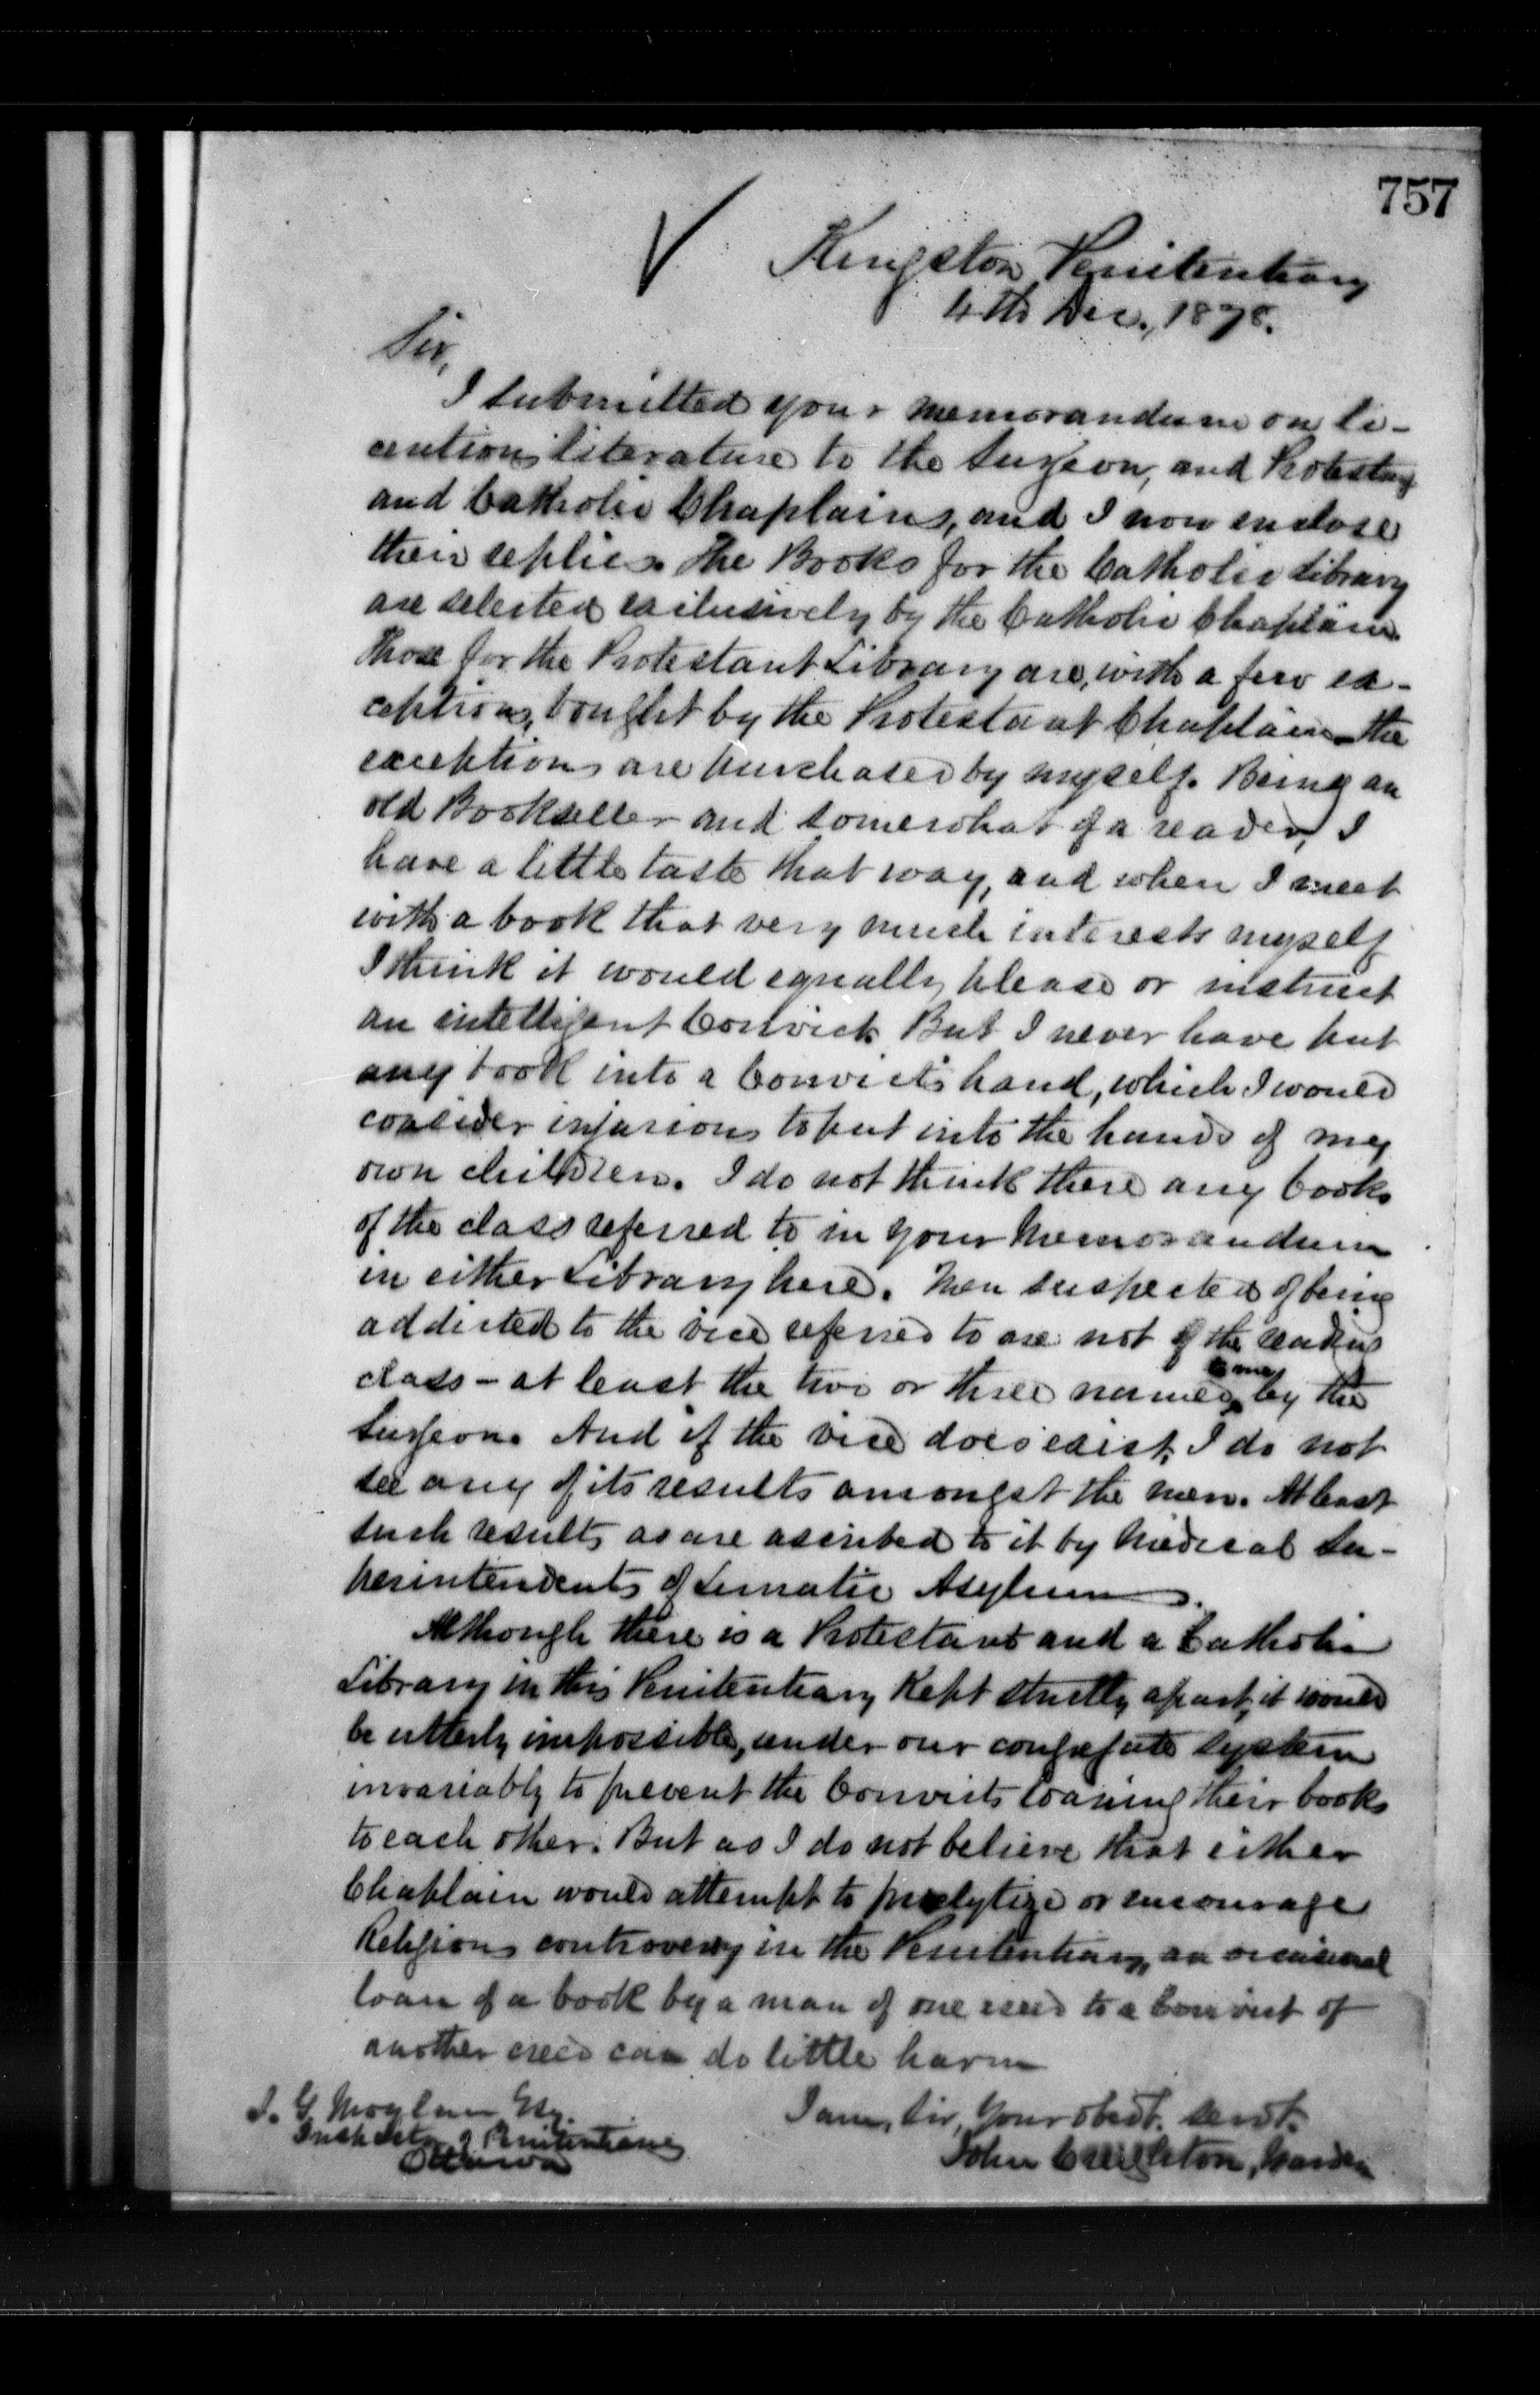 757
Kingston Penitentiary
4th Dec., 1878.
Sir,
I submitted your memorandum on li-
centious literature to the Surgeon, and Protestant
and Catholic Chaplains, and I now enclose
their replies. The Books for the Catholic Library
are selected exclusively by the Catholic Chaplain.
Those for the Protestant Library are, with a few ex-
ceptions, bought by the Protestant Chaplain - the
exceptions are purchased by myself. Being an
old Bookseller and somewhat of a reader, I
have a little taste that way, and when I meet
with a book that very much interests myself
I think it would equally please or instruct
an intelligent Convict. But I never have put
any book into a Convict's hand, which I would
consider injurious to put into the hands of my
own children. I do not think there any books
of the class referred to in your Memorandum
in either Library here. Men suspected of being
addicted to the vice referred to are not of the reading
class - at least the two or three named to me by the
Surgeon. And if the vice does exist, I do not
see any of its results amongst the men. At least
such results as are ascribed to it by Medical Su-
perintendents of Lunatic Asylums.
Although there is a Protestant and a Catholic
Library in this Penitentiary kept strictly apart, it would
be utterly impossible, under our congregate system
invariably to prevent the Convicts loaning their books
to each other. But as I do not believe that either
Chaplain would attempt to proselytize or encourage
Religious controversy in the Penitentiary, an occasional
loan of a book by a man of one creed to a Convict of
another creed can do little harm
I am, Sir, Your obedt. servt.
John Creighton, Warden
J. G. Moylan Esq.
Inspector of Penitentiaries
Ottawa